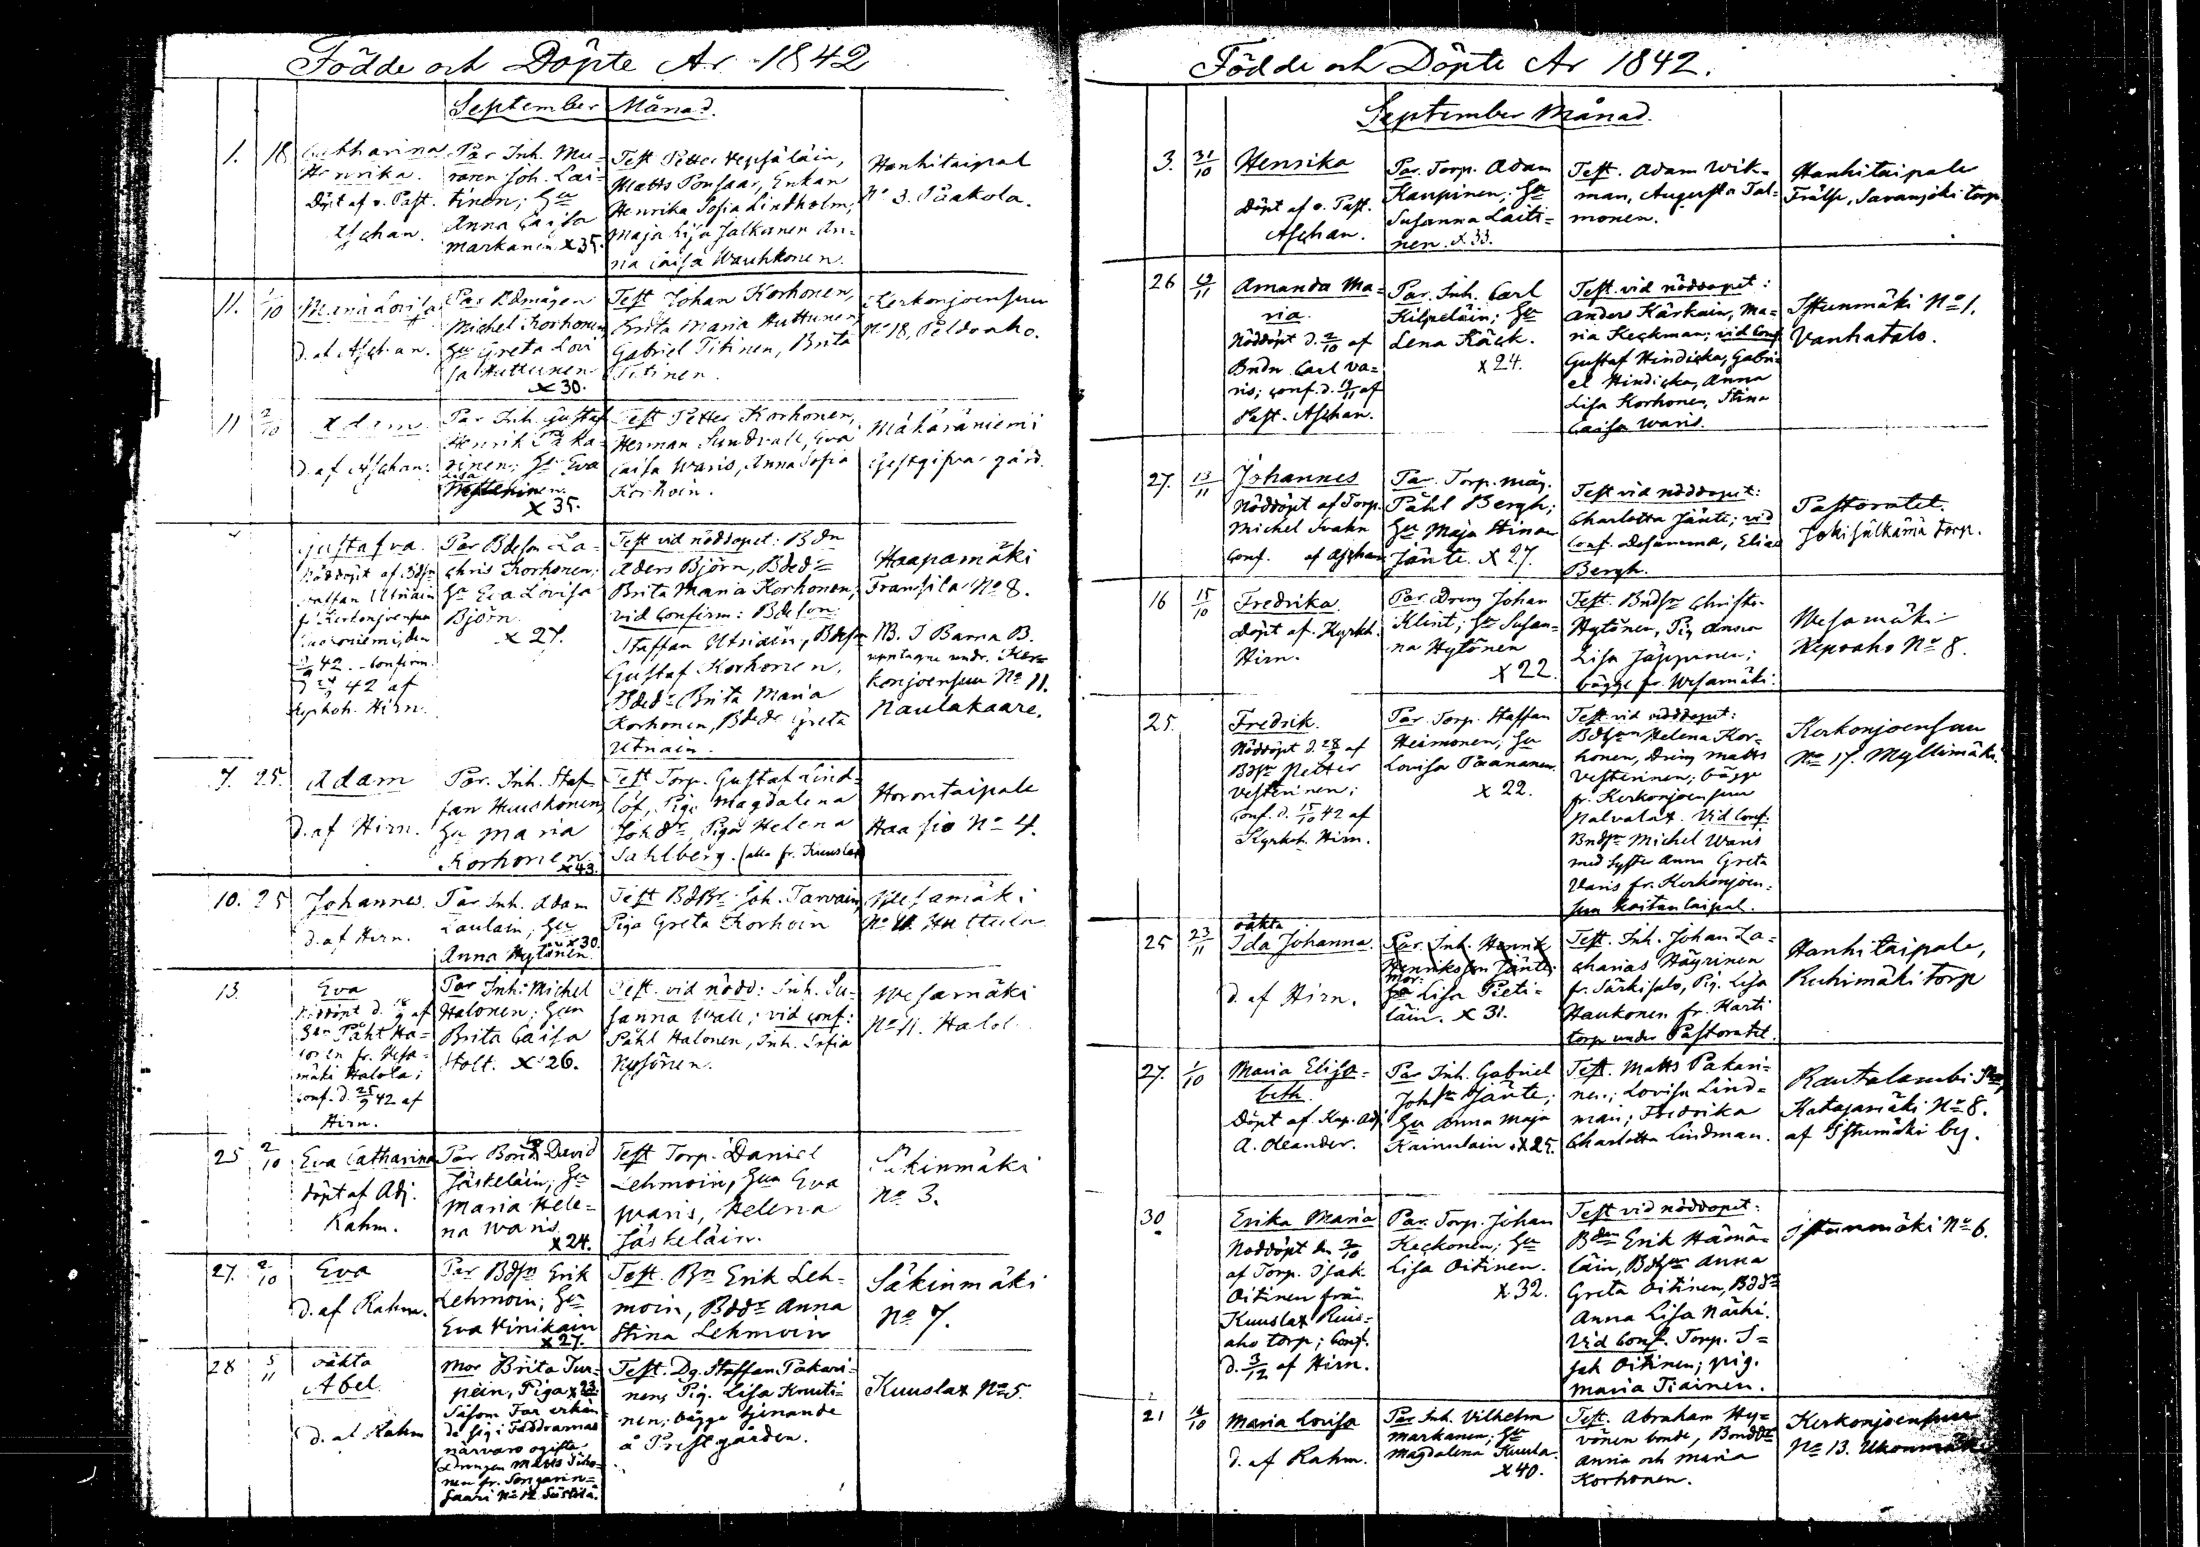 Födde och Döpte År 1842
September Månad.
1. 18 Catharina
Henrika.
Döpt af v. Past.
Aschan.
Par Inh. Mu-
raren Joh. Lai-
tinen; Hu
Anna Caisa
Markanen x 35.
Test Petter Hepsäläin,
Matts Ponsaar, Enkan
Henrika Sofia Lindholm,
Maja Lisa Jalkanen An-
na Caisa Wauhkonen.
Hanhitaipal
No 3. Puakola.
11. 1/10 Maria Lovisa
d. af Aschan.
Par Bdmågen
Michel Korhonen
Hu Greta Lovi
sa Huttunen
x 30.
Test Johan Korhonen,
Brita Maria Huttunen
Gabriel Titinen, Brita
Titinen.
Kerkonjoensuu
No 18, Peldoaho.
11 2/10 Adam
d. af Aschan.
Par Inh. Gustaf
Henrik Paka-
rinen; Hu Eva
Lisa
x 35.
Test Petter Korhonen,
Herman Sundvall, Eva
Caisa Waris, Anna Sofia
Korhoin.
Mäkäräniemi
Gestgifvar gård.
Gustafva.
Nöddöpt af Bdsn
Staffan Utriain
fr. Kerkonjoensuu
den
42. Confirm.
42 af
Kyrkoh. Hirn.
Par Bdeson La-
chris Korhonen;
Hu Eva Lovisa
Björn.
x 27.
Test vid nöddopet: Bdn
Aders Björn, Bded:r
Brita Maria Korhonen;
vid Confirm: Bdeson
Staffan Utriain, Bdesn
Gustaf Korhonen,
Bded:r Brita Maria
Korhonen, Bdedr Greta
Utriain.
Haapamäki
Fransila No 8.
NB. I Barna B.
upptagne undr. Ker-
konjoensuu No 11.
Naulakaare.
7. 25. Adam
d. af Hirn.
Par. Inh. Staf-
fan Huuskonen,
Hu Maria
Korhonen.
x 43.
Test Torp. Gustaf Lind-
löf, Pig. Magdalena
Johdr, Pigan Helena
Sahlberg. (alla fr. Kuuslax
Horontaipale
Haasio No 4.
10. 25 Johannes.
d. af Hirn.
Par Inh. Adam
Laulain; Hu
Anna Hytönen. x 30.
Test Bdsn Joh. Tarvain,
Piga Greta Korhoin
Wesamäki
No 11. Huttula
13. Eva
Nöddöpt d. 18/9 af
Bdn Påhl Ha-
lonen fr. Wesa-
mäki Halola;
conf. d. 25/9 42 af
Hirn.
Par Inh: Michel
Halonen; Hun
Brita Caisa
Holt. x 26.
Test. vid nödd: Inh. Su-
sanna Wall; vid conf:
Påhl Halonen, Inh. Sofia
Nysönen.
Wesamäki
No 11. Halol
25 2/10 Eva Catharina
döpt af Adj.
Rahm.
Par Bond David
Jäskeläin; Hu
Maria Hele-
na Waris.
x 24.
Test Torp. Daniel
Lehmoin, Hun Eva
Waris, Helena
Jäskeläin.
Säkinmäki
No 3.
27. 2/10 Eva
d. af Rahm.
Par Bdsn Erik
Lehmoin; Hu
Eva Hinikain
x 27.
Test. Bn Erik Leh-
moin, Bddr Anna
Stina Lehmoin
Säkinmäki
No 7.
28 5/11 oäkta
Abel.
d. af Rahm
Mor Brita Tur-
pein, Piga x 23.
Såsom Far erkän
de sig i Faddrarnas
närvaro ogifta
Drengen Matts Tiiho-
nen fr. Sonkarin-
saari No 12
Test. Dg. Staffan Pakari-
nen, Pig. Lisa Knuti-
nen; bägge tjenande
å Prestgården.
Kuuslax No 5.
Födde och Döpte År 1842.
September Månad.
3. 31/10 Henrika
Döpt af v. Past.
Aschan.
Par. Torp. Adam
Kaupinen; Hu
Susanna Laiti-
nen. x 33.
Test. Adam Wik-
man, Augusta Tal-
monen.
Hanhitaipale
Frälse, Savanjoki torp.
26 13/11 Amanda Ma-
ria.
Nöddöpt d. 2/10 af
Bndn Carl Va-
ris; conf. d. 13/11 af
Past. Aschan.
Par. Inh. Carl
Kilpeläin; Hu
Lena Käck.
x 24.
Test. vid nöddopet:
Anders Kärkain, Ma-
ria Keckman; vid Conf
Gustaf Hindicka, Gabri-
el Hindicka, Anna
Lisa Korhonen, Stina
Caisa Waris.
Istunmäki No 1.
Vanhatalo.
27. 13/11 Johannes
Nöddöpt af Torp.
Michel Svahn
Conf. af Aschan
Par. Torp. måg.
Påhl Bergh;
Hu Maja Stina
Jänte. x 27.
Test vid nöddopet:
Charlotta Jänte; vid
Conf. desamma, Elias
Bergh.
Pastoratet.
Jokisälkämä torp.
16 15/10 Fredrika.
döpt af. Kyrkh.
Hirn.
Par. Dreng Johan
Klint; Hu Susan-
na Hytönen
x 22.
Test. Bndsn Christer
Hytönen, Pig Anna
Lisa Jäppinen;
bägge fr. Wesamäki.
Wesamäki
Kepoaho No 8.
25. Fredrik.
Nöddöpt d. 28/9 af
Bdsn Petter
Vesterinen;
conf. d. 15/10 42 af
Kyrkoh. Hirn.
Par. Torp. Staffan
Heimonen; Hu
Lovisa Paananen.
x 22.
Test vid nöddopet:
Helena Kor-
honen, Dreng Matts
Vesterinen; bägge
fr. Kerkonjoensuu
Nalvalax. Vid Conf:
Bndsn Michel Waris
med Syster Anna Greta
Varis fr. Kerkonjoen-
suu Koitantaipal.
Kerkonjoensuu
No 17. Myllimäki.
25 23/11 oäkta
Ida Johanna.
d. af Hirn.
Par. Inh. Henrik
Henriksson Jänte;
Mor:
Lisa Pieti-
läin. x 31.
Test. Inh. Johan La-
charias Häyrinen
fr. Särkisalo, Pig. Lisa
Haukonen fr. Harti
torp under Pastoratet.
Hanhitaipale,
Ruhimäki torp
27. 1/10 Maria Elisa-
beth.
döpt af. Kap. Adj.
A. Oleander.
Par Inh. Gabriel
Johsn Jänte;
Hu Anna Maja
Kainulain. x 25.
Test. Matts Pakari-
nen; Lovisa Lind-
man; Fredrika
Charlotta Lindman.
Rautalambi
Katajamäki No 8.
af Istunmäki by.
30 Erika Maria
Nöddöpt den 3/10
af Torp. Isak
Oitinen från
Kuuslax Ruus-
aho torp; Conf.
d. 3/12 af Hirn.
Par. Torp. Johan
Keckonen; Hu
Lisa Oitinen.
x 32.
Test vid nöddopet:
Bden Erik Hämä-
läin, Bdsn Anna
Greta Oitinen, Bddr
Anna Lisa Närhi.
Vid Conf. Torp. I-
sak Oitinen; pig.
Maria Tiainen.
Istunmäki No 6.
21 14/10 Maria Lovisa
d. af Rahm.
Par Inh. Vilhelm
Markanen; Hu
Magdalena Kuula.
x 40.
Test. Abraham Hy-
vönen bonde, Bonddr
Anna och Maria
Korhonen.
Kerkonjoensuu
No 13. Ukonmäki